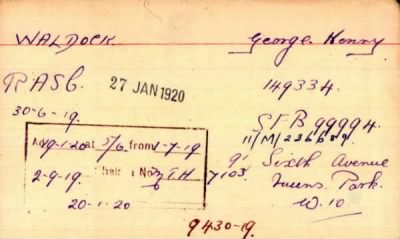 WALDOCK. George Henry
RASC. 27 JAN 1920 149334.
30-6-19. SFB 99994.
11/M/236689
19-1-20 at 5/6 from 1-7-19 91 Sixth Avenue
2-9-19. No 7103 Queens Park.
20-1-20 W.10
9430-19.